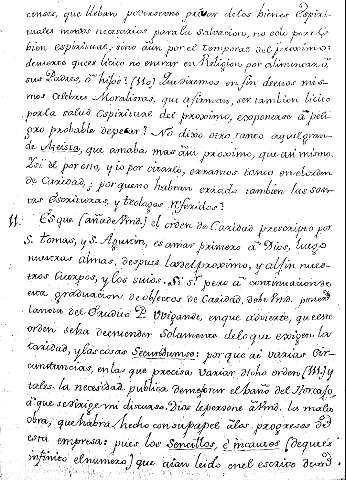 censes, que lleban por
de los bienes Espiri-
tuales menos necesarios para la Salvacion, no solo por el
bien espiritual, sino aun por el temporal del proximo:
demuestro q.e es licito no entrar en Religion por alimentar à
sus Padres, ò hijos? (110)
en fin de unos mis-
mos celebres Moralistas, que afirman, ser tambien licito
por la salud Espiritual del proximo, exponerse à peli-
gro probable de pecar? No dixo otro tanto aquel gran-
de Mexica, que amaba mas a un proximo, que a si mismo.
I si el por esto, y io por citarlo, erramos tanto en el orden
de Caridad, por que no habran errado tambien las San-
tas Escrituras, y teologos referidos?
11. Es que (añade Vmd.) el orden de Caridad prescripto por
S. Tomas, y S. Agustin, es amar primero à Dios, luego
nuestras almas, despues las del proximo, y al fin nues-
tros cuerpos, y los suios. Si S.r pero à continuacion de
esta graduacion de objectos de Caridad,
la nota del Erudito P. Wigandt, en que advierte, que este
orden se ha de entender solamente de lo que exigen la
caridad, y las cosas Secundum se: por que ai varias Cir-
cunstancias, en las que precisa variar dicho orden (111) y
tales la necesidad publica de mejorar el baño del
à que se dirige mi discurso. Dios le perdone à Vmd. la mala
obra, que habrà hecho con su papel à los progresos de
esta empresa: pues los Sencillos, è incautos (de que es
infinito el numero) que aian leido en el escrito de Vmd.